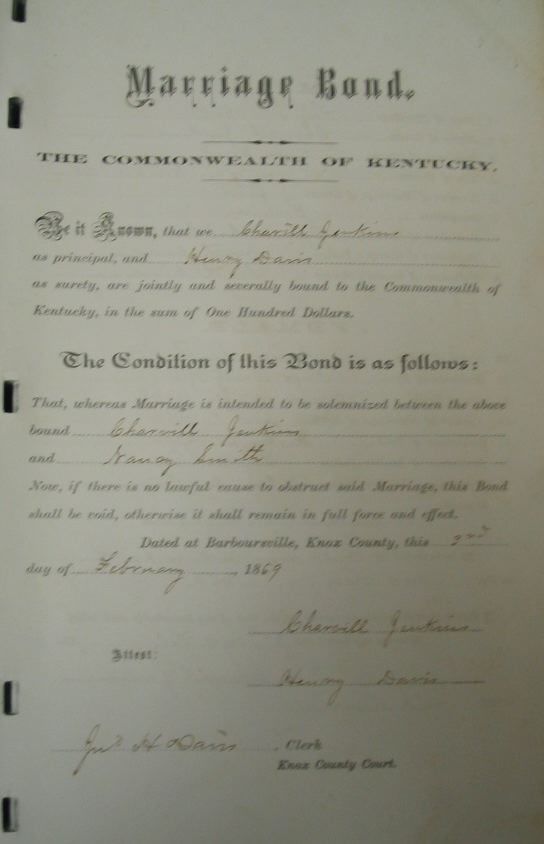 Marriage Bond.
THE COMMONWEALTH OF KENTUCKY.
Be it Known, that we Charvill Jenkins
as principal, and Henry Davis
as surety, are jointly and severally bound to the Commonwealth of
Kentucky, in the sum of One Hundred Dollars.
The Condition of this Bond is as follows:
That, whereas Marriage is intended to be solemnized between the above
bound Charvill Jenkins
and Nancy Smith
Now, if there is no lawful cause to obstruct said Marriage, this Bond
shall be void, otherwise it shall remain in full force and effect.
Dated at Barboursville, Knox County, this 2nd
day of February, 1869
Charvill Jenkins
Attest:
Henry Davis
Jno H Davis, Clerk
Knox County Court.